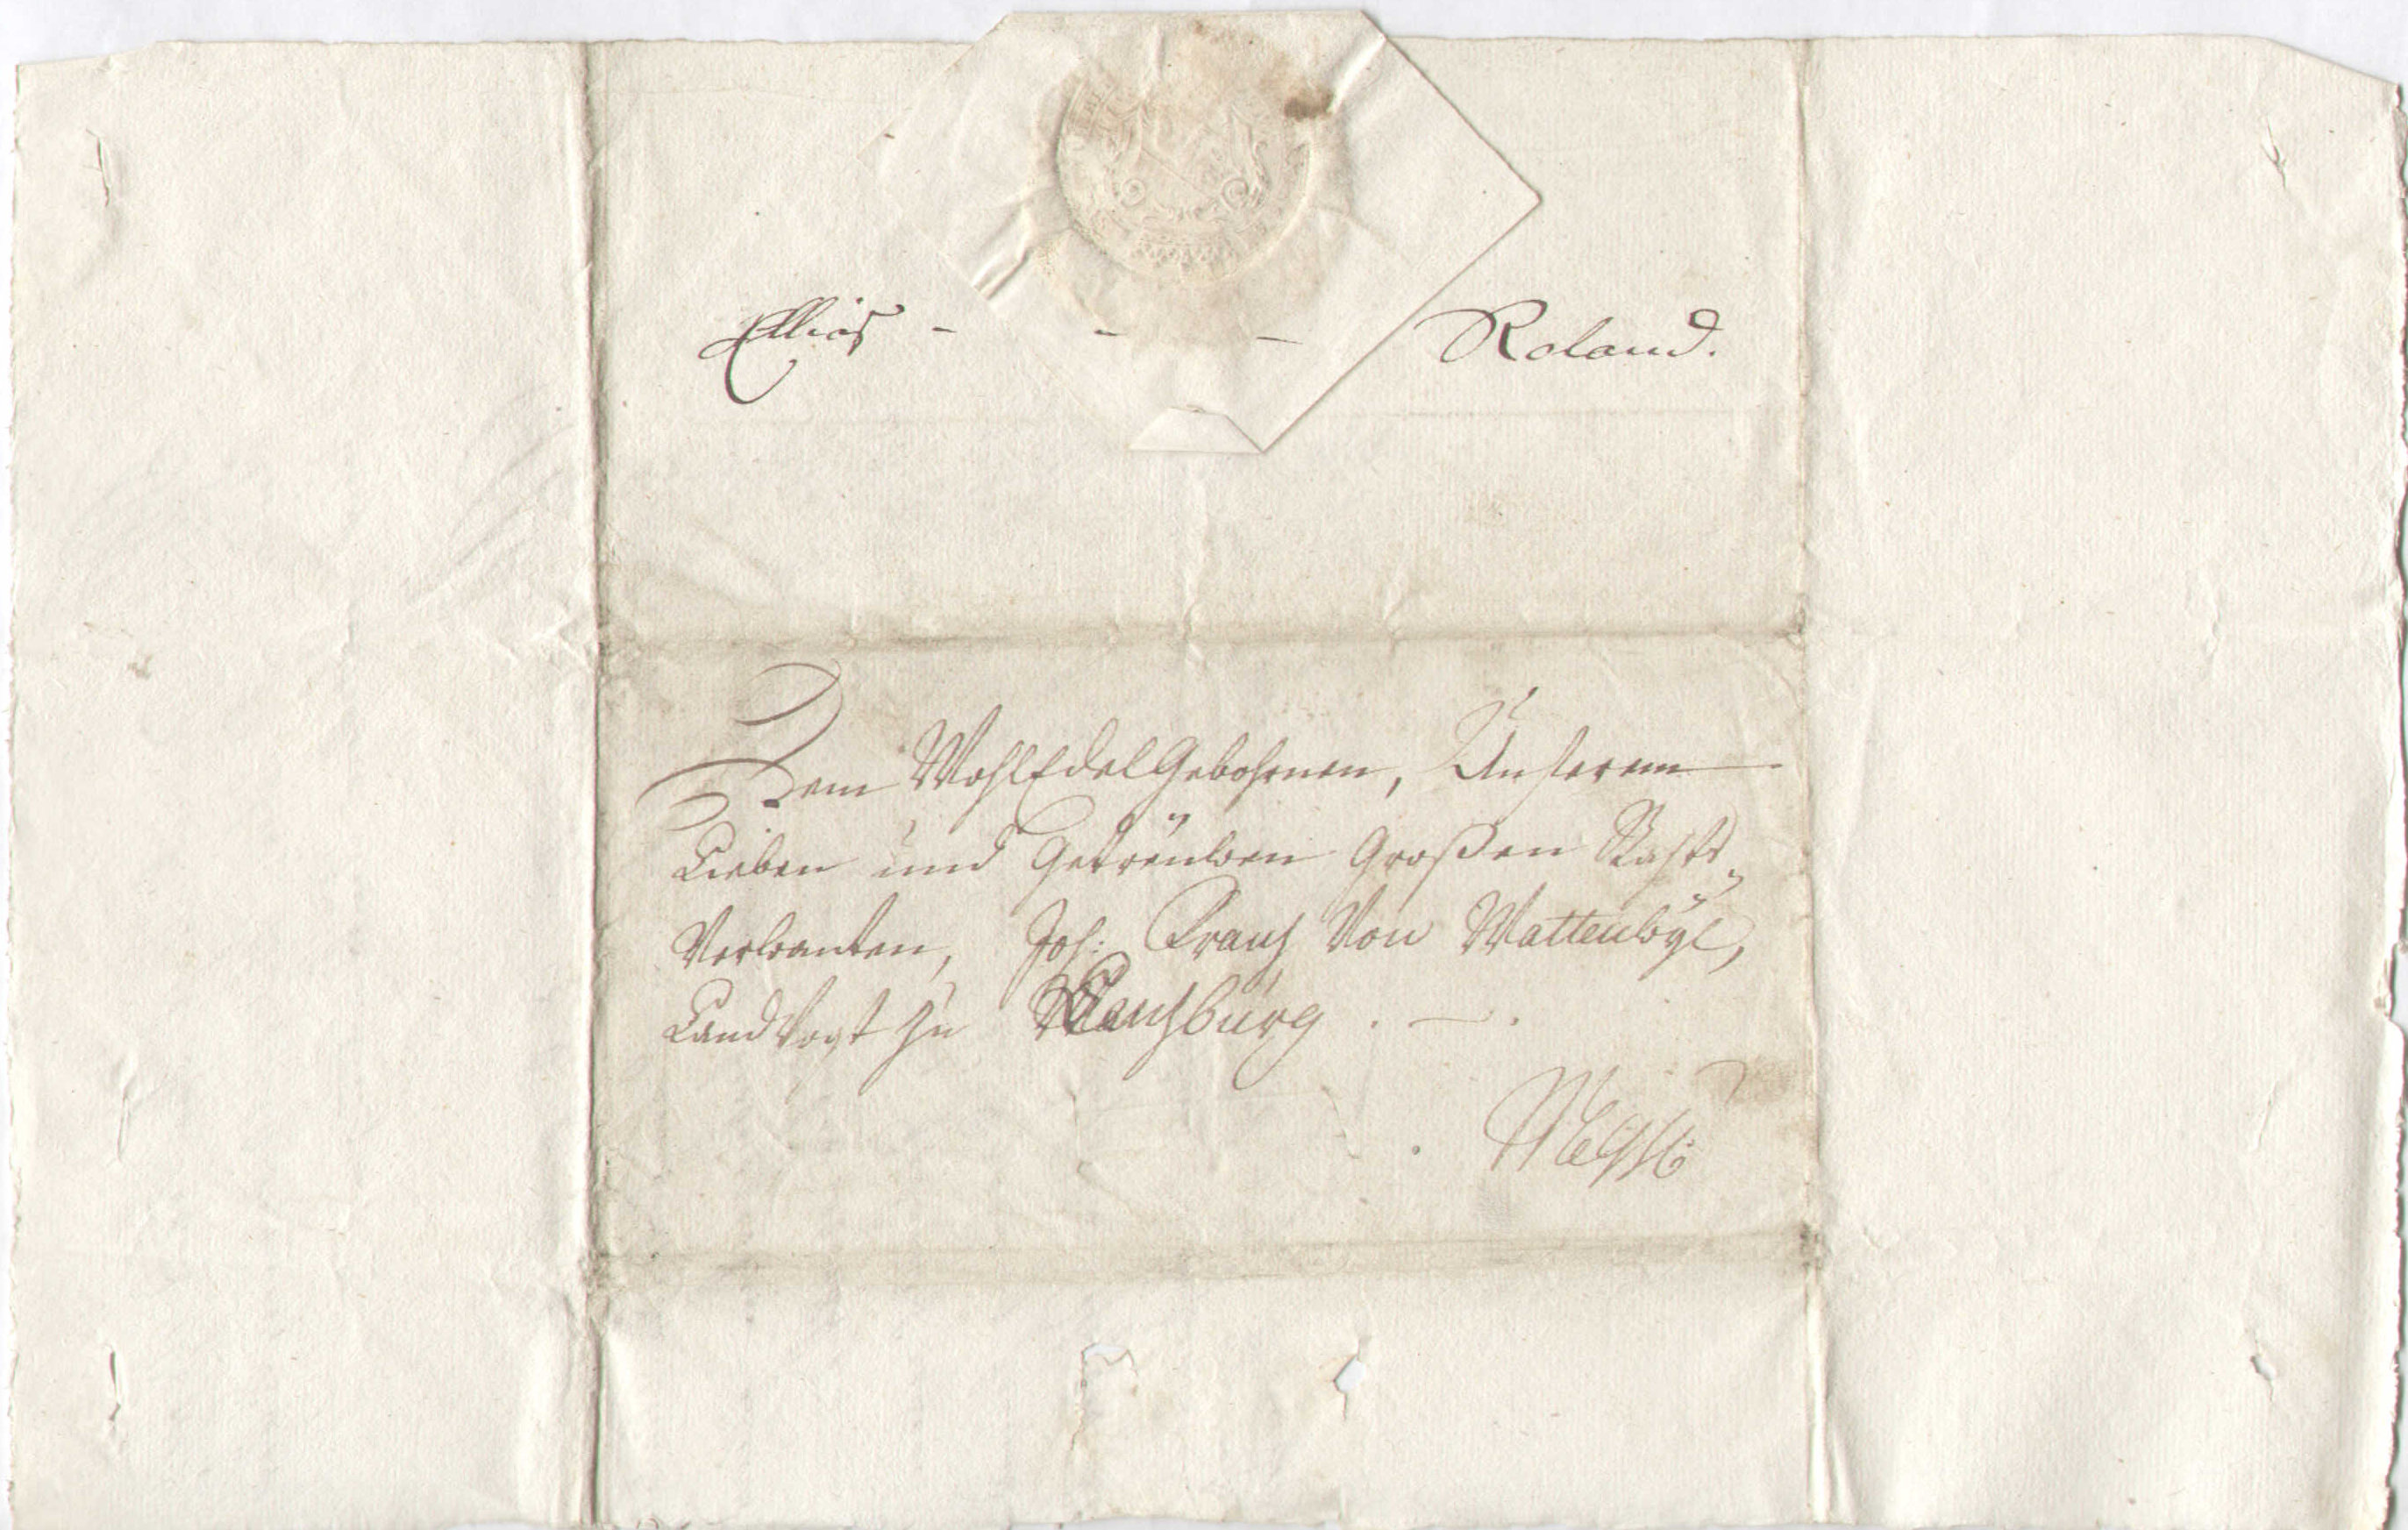 Ellias - - - Roland.
Dem WohlEdelGebohrnen, Unserem
Lieben und Getreüwen Großen Rahts„
Verwanten, Joh: Frantz Von Wattenwÿl,
LandVogt zu Lantzburg . — .